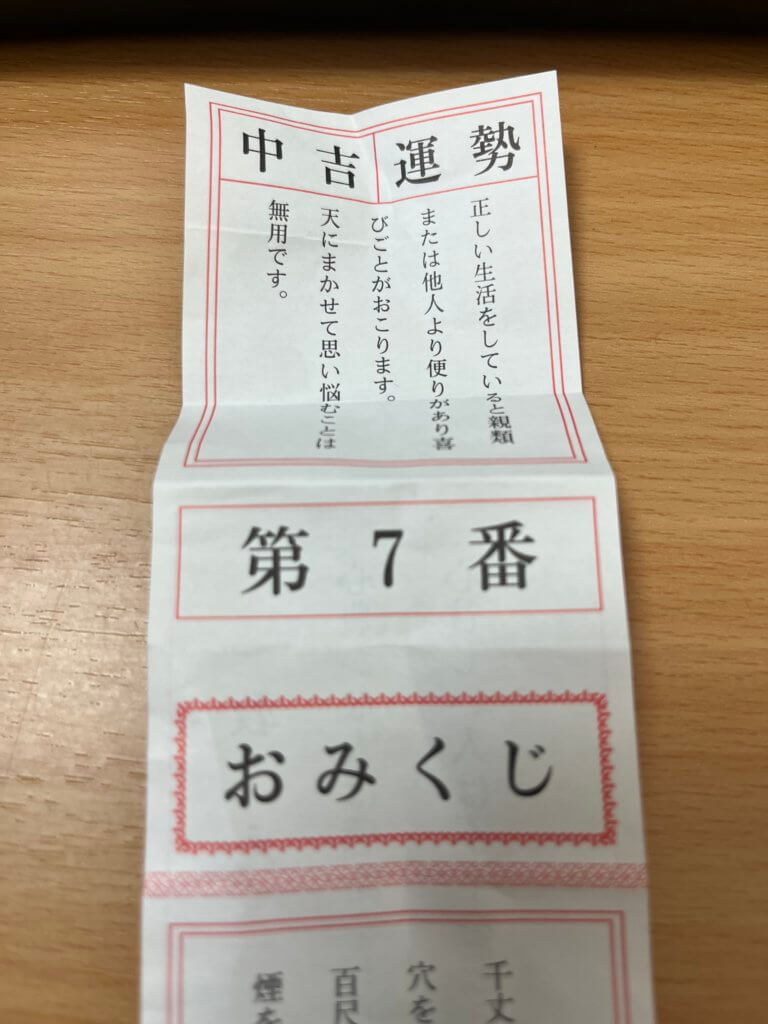 中吉 運勢
正しい生活をしていると親類
または他人より便りがあり喜
びごとがおこります。
天にまかせて思い悩むことは
無用です。
第7番
おみくじ
千丈
穴を
百尺
煙を